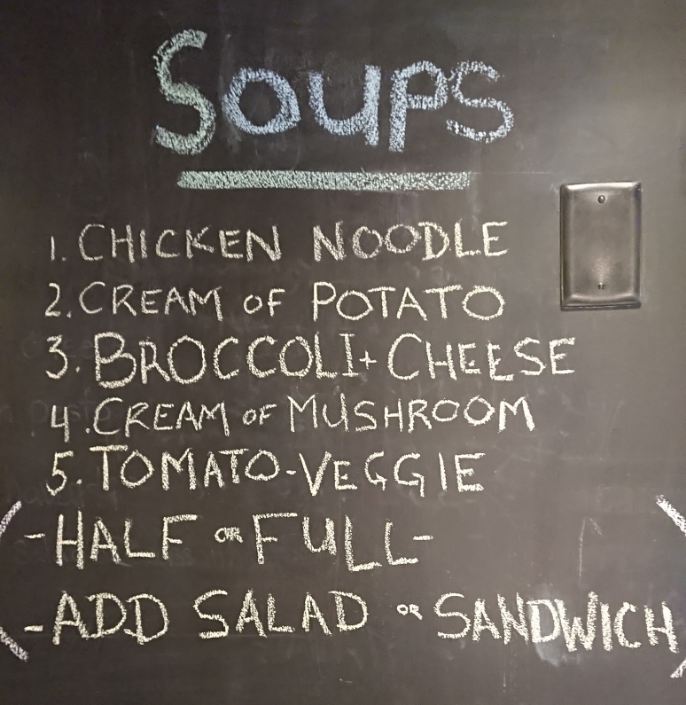 Soups
1. CHICKEN NOODLE
2. CREAM OF POTATO
3. BROCCOLI + CHEESE
4. CREAM OF MUSHROOM
5. TOMATO-VEGGIE
-HALF OR FULL-
-ADD SALAD OR SANDWICH